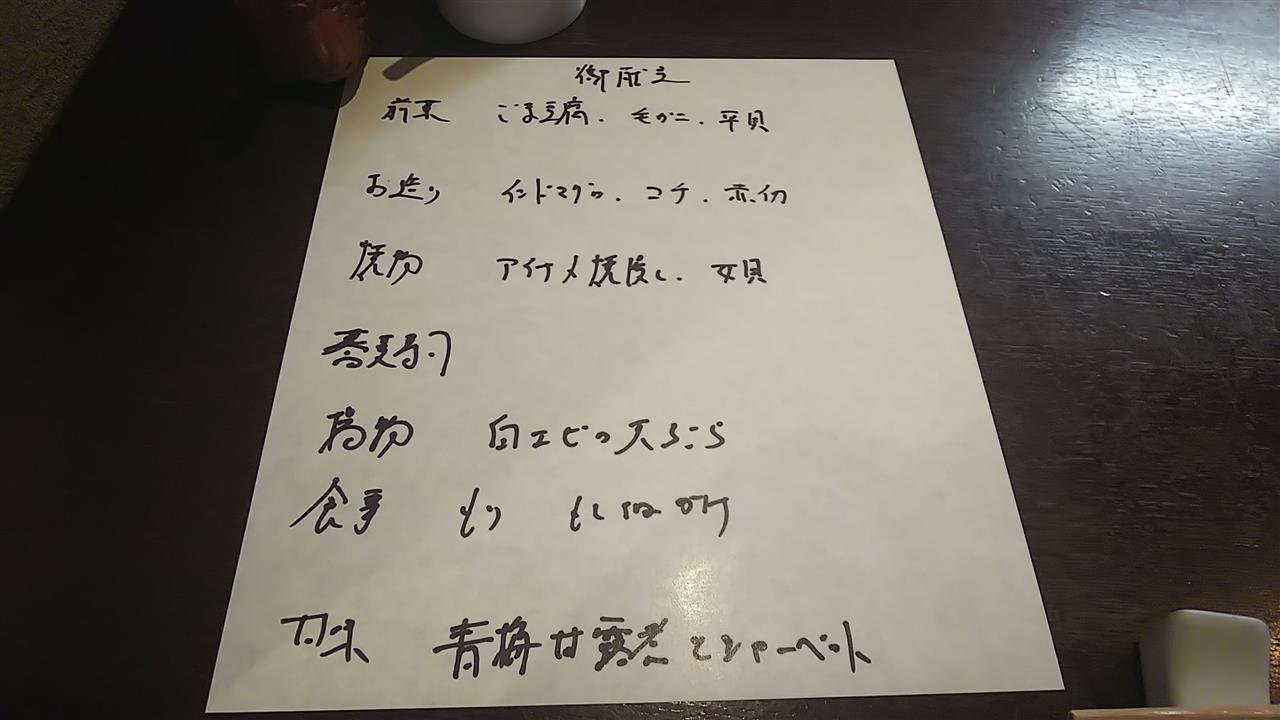 御献立
前菜 ごま豆腐. 毛がニ. 平貝
お造り インドマグロ. コチ.
焼物 アイナメ焼浸し.
蕎麦寿司
揚物 白エビの天ぷら
食事 もり もしくは かけ
甘味 青梅甘露煮とシャーベット